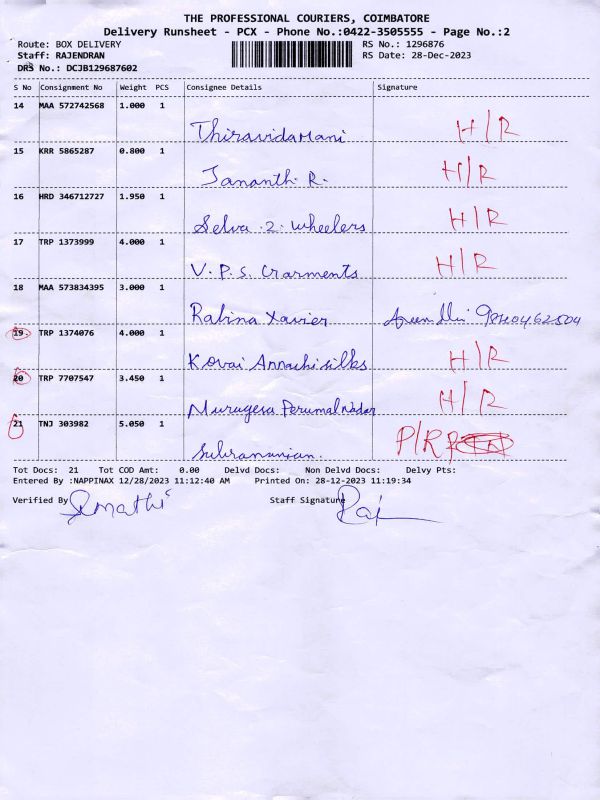 THE PROFESSIONAL COURIERS, COIMBATORE
Delivery Runsheet - PCX - Phone No.:0422-3505555 - Page No.:2
Route: BOX DELIVERY RS No.: 1296876
Staff: RAJENDRAN RS Date: 28-Dec-2023
DRS No.: DCJB129687602
S No Consignment No Weight PCS Consignee Details Signature
14 MAA 572742568 1.000 1
Thiravidamani H/R
15 KRR 5865287 0.800 1
Jananth. R. H/R
16 HRD 346712727 1.950 1
Selva .2. Wheelers H/R
17 TRP 1373999 4.000 1
V.P.S. Garments H/R
18 MAA 573834395 3.000 1
Rabina Xavier 9840462504
19 TRP 1374076 4.000 1
Kovai Annachi silks H/R
20 TRP 7707547 3.450 1
Murugesa Perumal Nadar H/R
21 TNJ 303982 5.050 1
Subramanian. P/R
Tot Docs: 21 Tot COD Amt: 0.00 Delvd Docs: Non Delvd Docs: Delvy Pts:
Entered By :NAPPINAX 12/28/2023 11:12:40 AM Printed On: 28-12-2023 11:19:34
Verified By Staff Signature
Raj